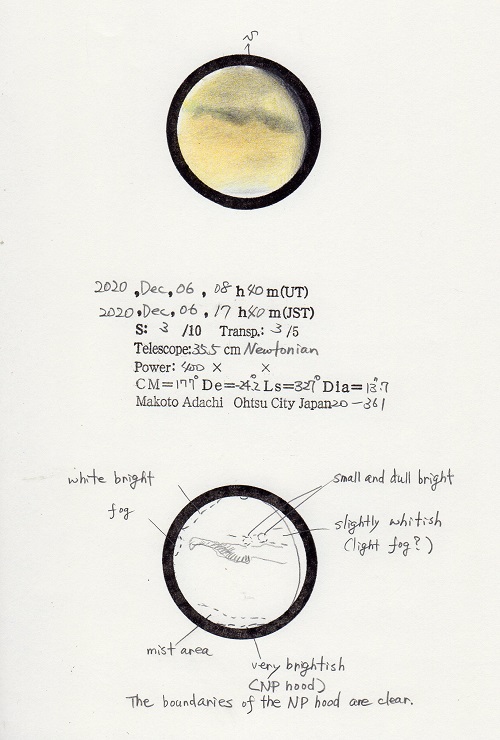 S
2020, Dec, 06, 08 h 40 m (UT)
2020, Dec, 06, 17 h 40 m (JST)
S: 3 /10 Transp.: 3 /5
Telescope: 35.5 cm Newtonian
Power: 400 × ×
CM=177° De=-24.2° Ls=327° Dia=13".7
Makoto Adachi Ohtsu City Japan 20-361
white bright
small and dull bright
fog
slightly whitish
(light fog?)
mist area
very brightish
(NP hood)
The boundaries of the NP hood are clear.